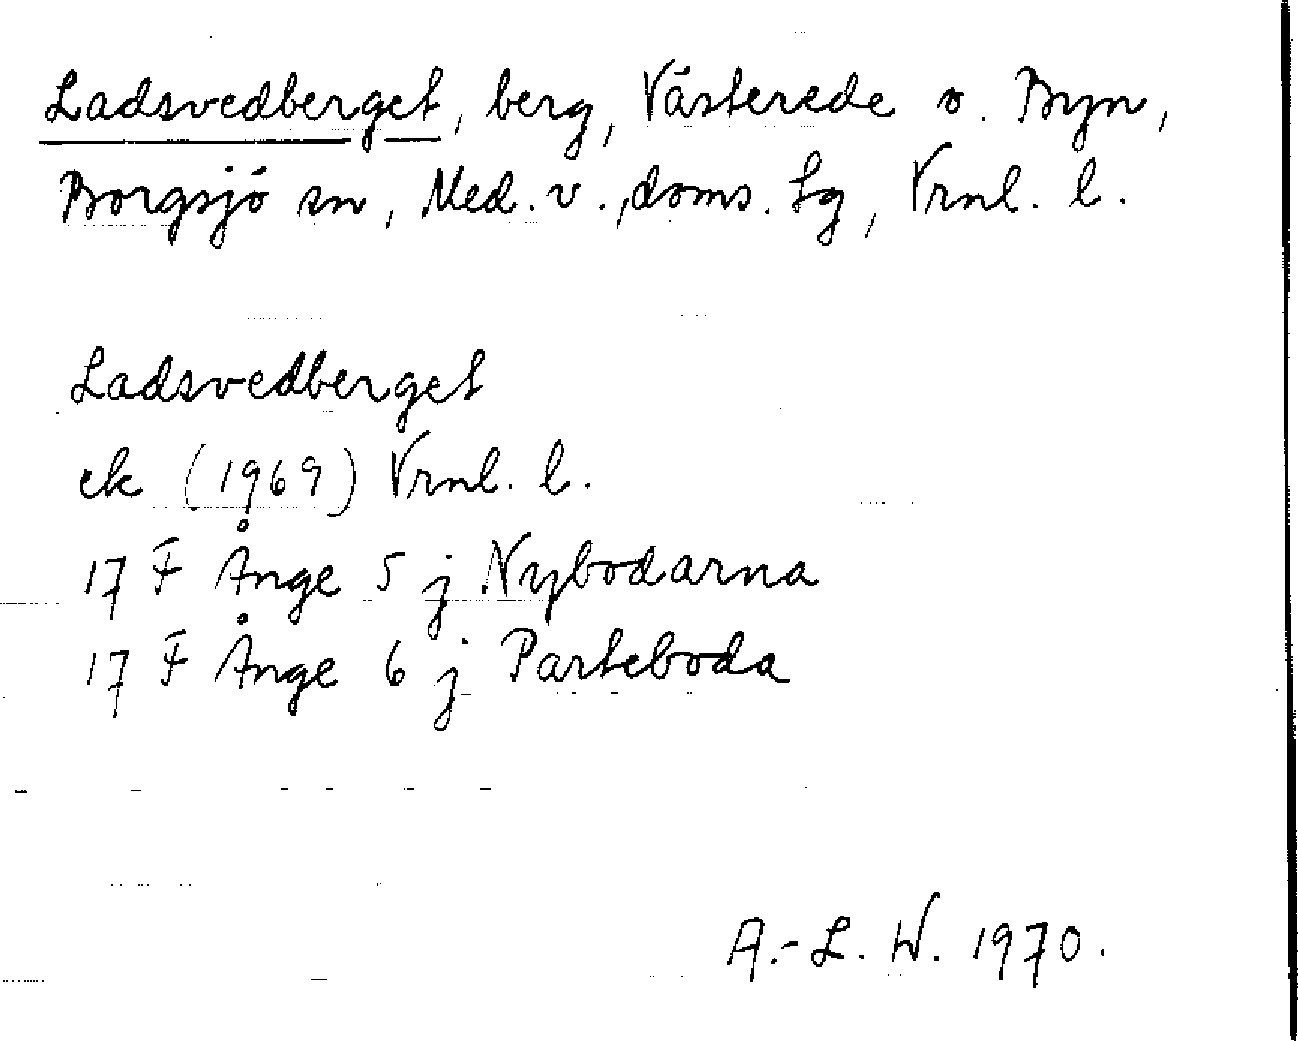 Ladsvedberget, berg, Västerede o. Byn,
Borgsjö sn, Med. v., doms. Lg, Vrnl. l.
Ladsvedberget
ek (1969) Vrnl. l.
17 F Ånge 5 j Nybodarna
17 F Ånge 6 j Parteboda
A.-L. W. 1970.